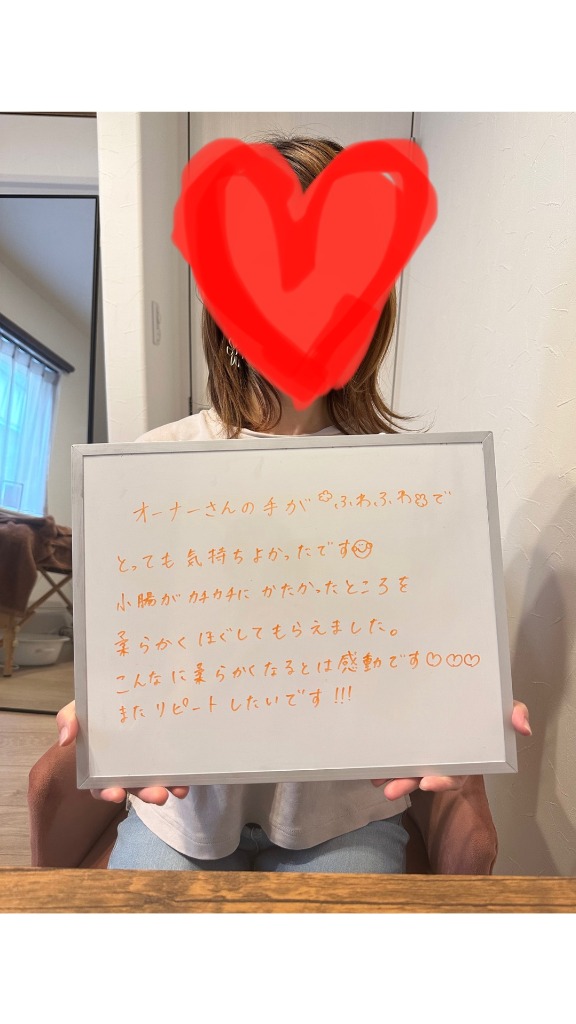 オーナーさんの手が ふわふわ で
とっても気持ちよかったです
小腸がカチカチに かたかったところを
柔らかくほぐしてもらえました。
こんなに柔らかくなるとは感動です♡♡♡
またリピートしたいです!!!